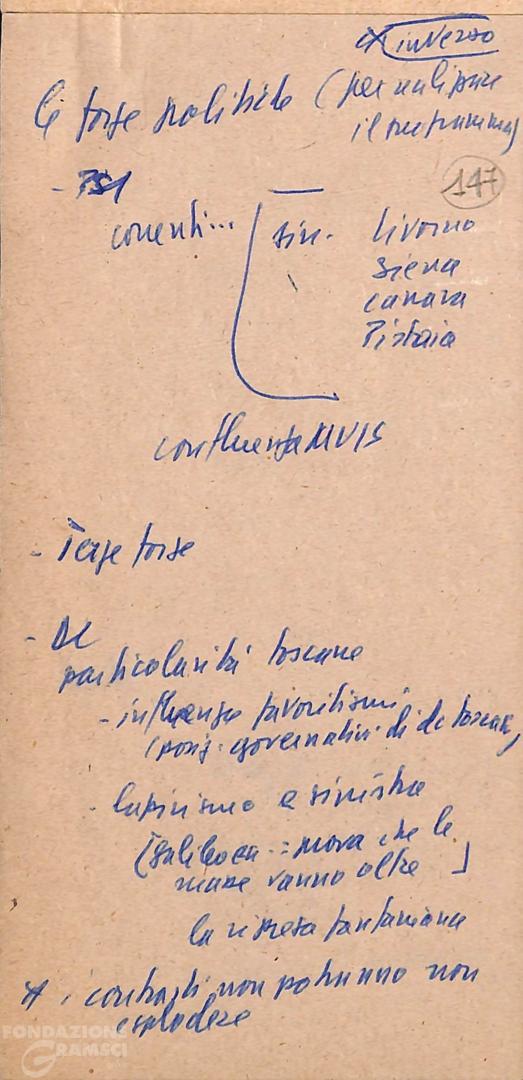 inverso
le forze politiche (per realizzare
il programma)
147
- PSI
correnti... sin. Livorno
Siena
Carrara
Pistoia
confluenza MUIS
- Terze forze
- DC
particolarità toscane
- influenze favoritismi
(posiz. governativi di dc toscani)
- lapirismo e sinistra
(Galileo = prova che le
masse vanno oltre
la ripresa fanfaniana
i contrasti non potranno non
esplodere
FONDAZIONE
GRAMSCI